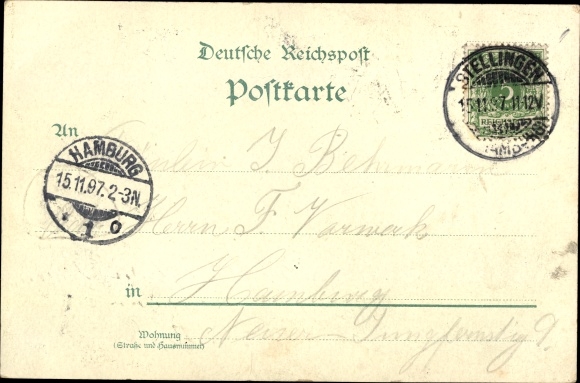 Deutsche Reichspost
Postkarte
STELLINGEN
15.11.97.11-12V.
(HAMBURG)
5
REICHSPOST
An
Fräulein J. Behrmann
HAMBURG
15.11.97.2-3N.
* 1 o
Herrn F. Vorwerk
in Hamburg
Wohnung
(Straße und Hausnummer)
Neuer Jungfernstieg